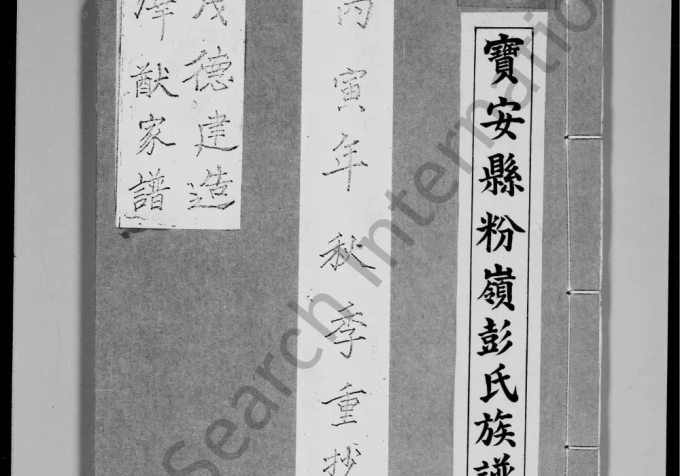 寶安縣粉嶺彭氏族譜
丙寅年秋季重抄
茂德建造
澤猷家譜
Search Internatio